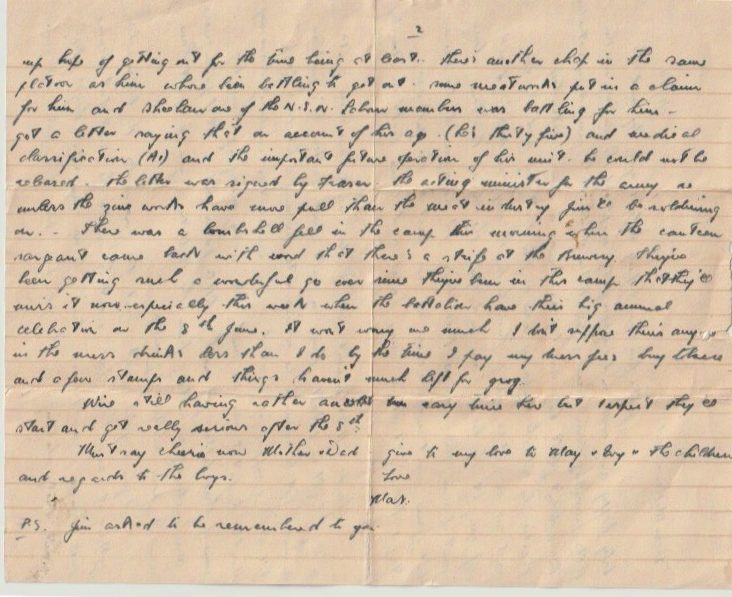 2
up hope of getting out for the time being at least. there's another chap in the same
platoon as him whose been battling to get out. some meatworks put in a claim
for him and Sheehan one of the N.S.W. Labour members was battling for him -
got a letter saying that on account of his age (he's thirty five) and medical
classification (A1) and the important future operation of his unit. he could not be
released. the letter was signed by Fraser the acting minister for the army so
unless the zinc works have more pull than the meat industry Jim'll be soldiering
on. - There was a bombshell fell in the camp this morning when the canteen
sargeant came back with word that there's a strife at the Brewery they've
been getting such a wonderful go ever since they've been in this camp that they'll
miss it now especially this week when the battalion have their big annual
celebration on the 8th June. it won't worry me much I don't suppose there's any
in the mess drinks less than I do by the time I pay my mess fees buy
and a few stamps and things haven't much left for grog.
We're still having rather an easy time but I expect they'll
start and get really serious after the 8th.
Must say cheerio now Mother & Dad give to my love to May & & the children
and regards to the boys. Love
P.S. Jim asked to be remembered to you